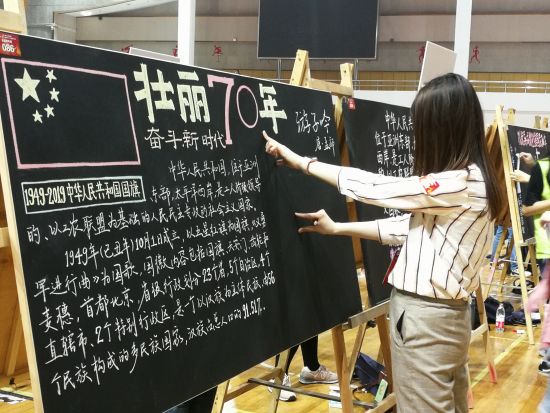 086
壮丽70年
奋斗新时代
游子吟
1949-2019中华人民共和国国旗
中华人民共和国,位于亚洲
东部,太平洋西岸,是工人阶级领导
的、以工农联盟为基础的人民民主专政的社会主义国家。
1949年(己丑年)10月1日成立,以五星红旗为国旗,义勇
军进行曲》为国歌,国徽内容包括国旗、天安门、齿轮和
麦穗,首都北京,省级行政划分23个省、5个自治区、4个
直辖市、2个特别行政区,是一个以汉族为主体民族,由56
个民族构成的多民族国家,汉族占总人口的91.51%。
中华人民